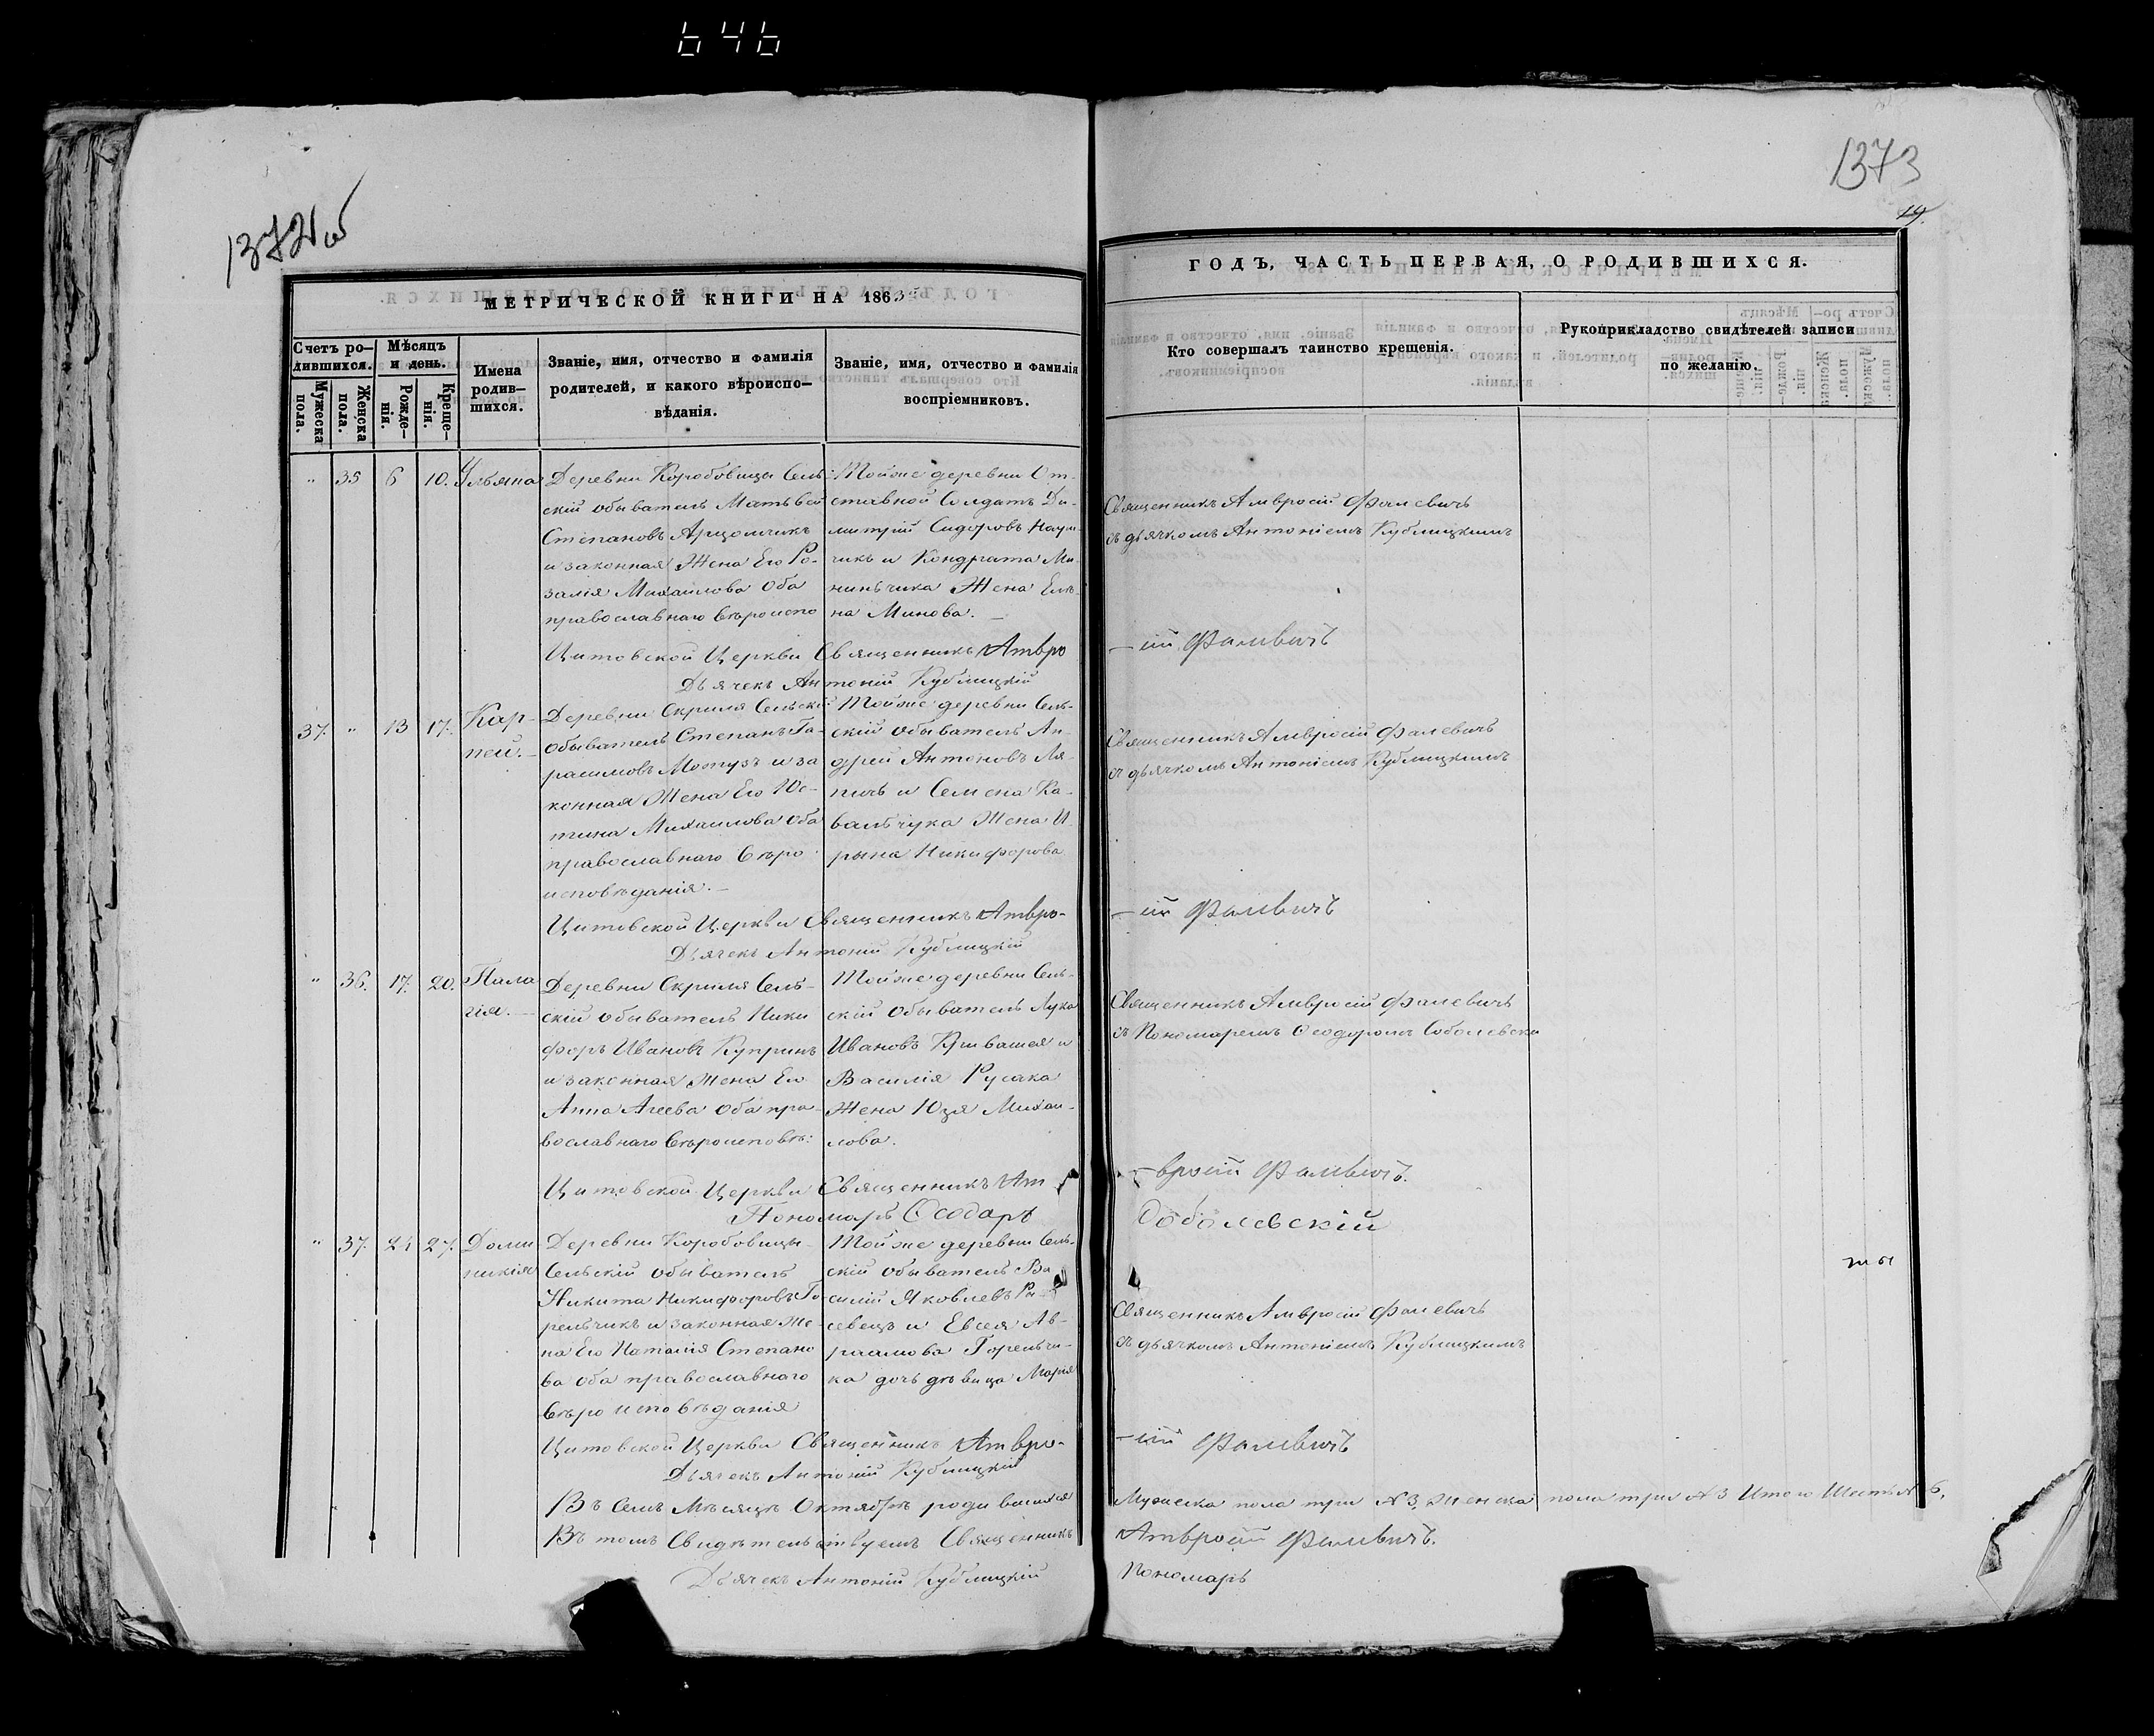 646
1372 об
1373
19.
МЕТРИЧЕСКОЙ КНИГИ НА 1863й
ГОДЪ, ЧАСТЬ ПЕРВАЯ, О РОДИВШИХСЯ.
Счетъ ро-
дившихся.
Мужеска
пола.
Женска
пола.
Мѣсяцъ
и день.
Рожде-
нія.
Креще-
нія.
Имена
родив-
шихся.
Званіе, имя, отчество и фамилія
родителей, и какого вѣроиспо-
вѣданія.
Званіе, имя, отчество и фамилія
воспріемниковъ.
Кто совершалъ таинство крещенія.
Рукоприкладство свидѣтелей записи
по желанію.
" 35 6 10. Ульяна
Деревни Коробовицы Сель-
скій обыватель Матьвей
Степановъ Арцюмчикъ
и законная Жена Его Ро-
залія Михаилова Оба
православнаго вѣроиспо
Тойже деревни От-
ставной Солдатъ Ди-
митрій Сидоровъ Наум-
чикъ и Кондрата Ми-
ниньчика Жена Еле-
на Минова.
Священникъ Амвросій Фалевичъ
съ дьячкомъ Антоніемъ Кублицкимъ
Цитовской Церкви Священникъ Амвро
—ій Фалевичъ
Дьячекъ Антоній Кублицкій
37. " 13 17. Кар-
пей.—
Деревни Скриля Сельскій
обыватель Степанъ Га-
расимовъ Мотузъ и за
конная Жена Его Юс-
тина Михаилова Оба
православнаго вѣро
исповѣданія.—
Тойже деревни Сель-
скій обыватель Ан-
дрей Антоновъ Ля-
пичъ и Семена Ка-
вальчука Жена И-
рына Никифорова
Священникъ Амвросій Фалевичъ
съ дьячкомъ Антоніемъ Кублицкимъ
Цитовской Церкви Священникъ Амвро-
—ій Фалевичъ
Дьячекъ Антоній Кублицкій
" 36. 17. 20. Пала
гія.—
Деревни Скриля Сель-
скій обыватель Ники
форъ Ивановъ Купринъ
и законная Жена Его
Анна Агеева оба пра-
вославнаго вѣроисповѣ:
Тойже деревни Сель-
скій обыватель Лука
Ивановъ и
Василія Русака
Жена Юзя Михаи-
лова.
Священникъ Амвросій Фалевичъ
съ Пономаремъ Ѳеодоромъ Соболевски
Цитовской Церкви Священникъ Ам
—вросій Фалевичъ.
Пономарь Ѳеодаръ
Соболевскій
" 37. 24 27. Доми
никія
Деревни Коробовицы
Сельскій обыватель
Никита Никифоровъ Го-
рельчикъ и законная Же-
на Его Наталія Степано
ва оба православнаго
вѣроисповѣданія
Тойже деревни Сель-
скій обыватель Ва
силій Яковлевъ Ра-
севецъ и Евсея Ав-
раамова Горельчи-
ка дочь дѣвица Марія
Священникъ Амвросій Фалевичъ
съ дьячкомъ Антоніемъ Кублицкимъ
Цитовской Церкви Священникъ Амвро-
—ій Фалевичъ
Дьячекъ Антоній Кублицкій
Въ семъ Мѣсяцѣ Октябрѣ родившихся
Мужеска пола три № 3, Женска пола три № 3 Итого Шесть № 6.
Въ томъ Свидѣтельствуемъ Священникъ
Амвросій Фалевичъ.
Дьячекъ Антоній Кублицкій
Пономарь